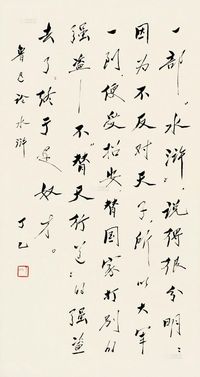 一部“水浒”，说得很分明：
因为不反对天子，所以大军
一到，便受招安，替国家打别的
强盗——不“替天行道”的强盗
去了。终于是奴才。
鲁迅论水浒
丁巳